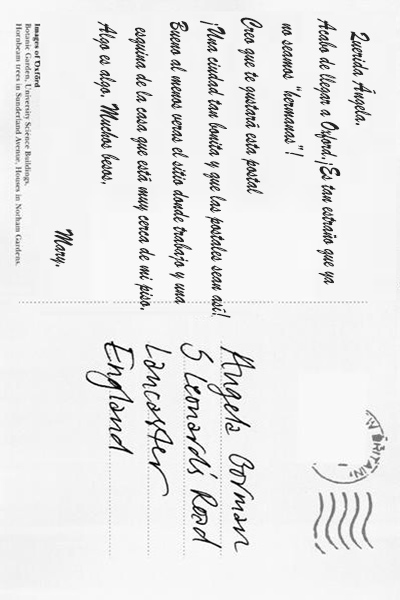 Querida Ángela.
Acabo de llegar a Oxford. ¡Es tan estraño que ya
no seamos "hermanas"!
Creo que te gustará esta postal
¡Una ciudad tan bonita y que las postales sean asi!
Bueno al menos veras el sitio donde trabajo y una
esquina de la casa que está muy cerca de mi piso.
Algo es algo. Muchos besos,
Mary,
Images of Oxford
Botanic Garden, University Science Buildings.
Hornbeam trees in Sunderland Avenue, Houses in Norham Gardens.
Angela Gorman
5 Leonards Road
Lancaster
England